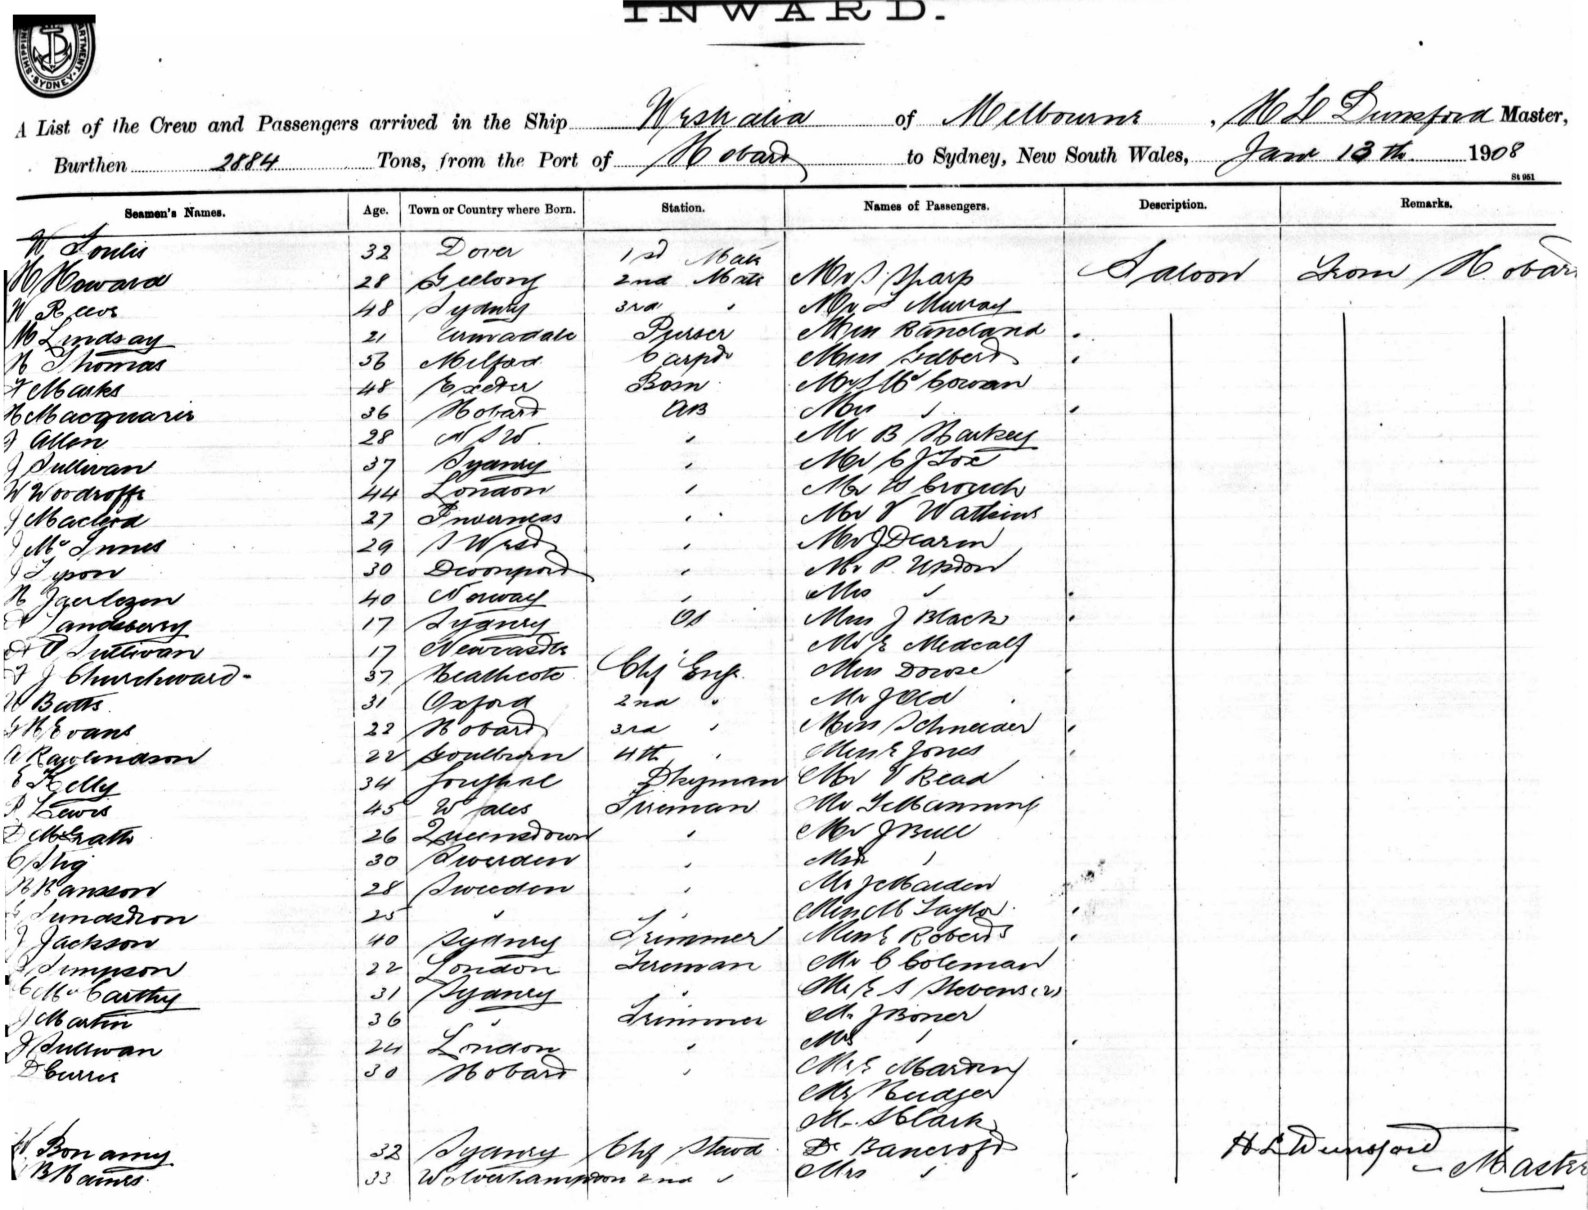 INWARD.
SYDNEY
A List of the Crew and Passengers arrived in the Ship Westralia of Melbourne, H L Dunsford Master,
Burthen 2884 Tons, from the Port of Hobart to Sydney, New South Wales, Jan 13th 1908
St 951
Seamen's Names. Age. Town or Country where Born. Station. Names of Passengers. Description. Remarks.
W 32 Dover 1st Mate
H Howard 28 Geelong 2nd Mate Mr S Sharp Saloon From Hobart
W Reeve 48 Sydney 3rd " Mr Murray
M Lindsay 21 Armadale Purser Miss
H Thomas 56 Milford Carptr Miss Gilbert
F Marks 48 Exeter Bosn Mr S McCowan
H Macquarie 36 Hobart AB Mrs "
J Allen 28 N S W. " Mr B Harkey
J Sullivan 37 Sydney " Mr C J Fox
W Woodroffe 44 London " Mr Crouch
J Macleod 27 Inverness " Mr V Watkins
J McInnes 29 " Mr J Dearen
J Tyson 30 Devonport " Mr P. Upton
H 40 Norway " Mrs "
Landsberry 17 Sydney OS Miss J Black
Sullivan 17 Newcastle " Mr E Medcalf
F J Churchward 37 Heathcote Chf Engr. Miss Dowse
Batts 31 Oxford 2nd " Mr J Old
G H Evans 22 Hobart 3rd " Miss Schneider
A Rawlindson 22 Goulburn 4th " Miss E Jones
E Kelly 34 Dkyman Mr V Read
P Lewis 45 Wales Fireman Mr T Manning
D McGrath 26 Queenstown " Mr J Bull
C Stig 30 Sweeden " Mrs "
H Hansson 28 Sweeden " Mr J Maiden
Lundstron 25 " " Miss M Taylor
J Jackson 40 Sydney Trimmer Miss E Roberts
Simpson 22 London Fireman Mr C Coleman
C McCarthy 31 Sydney " Mr E S Stevens (2)
J Martin 36 " Trimmer Mr J Boner
J Sullivan 24 London " Mrs "
D Currie 30 Hobart " Mr E Martin
Mr Hudger
Mr S Clark
W Bonamy 32 Sydney Chf Stewd Dr Bancroft H L Dunsford
B Haines 33 Wolverhampton 2nd " Mrs " Master